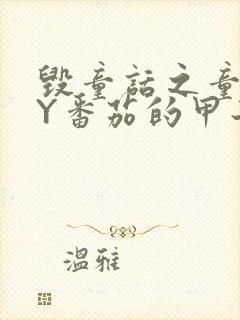 毁童话之童
Y番茄的甲
温雅